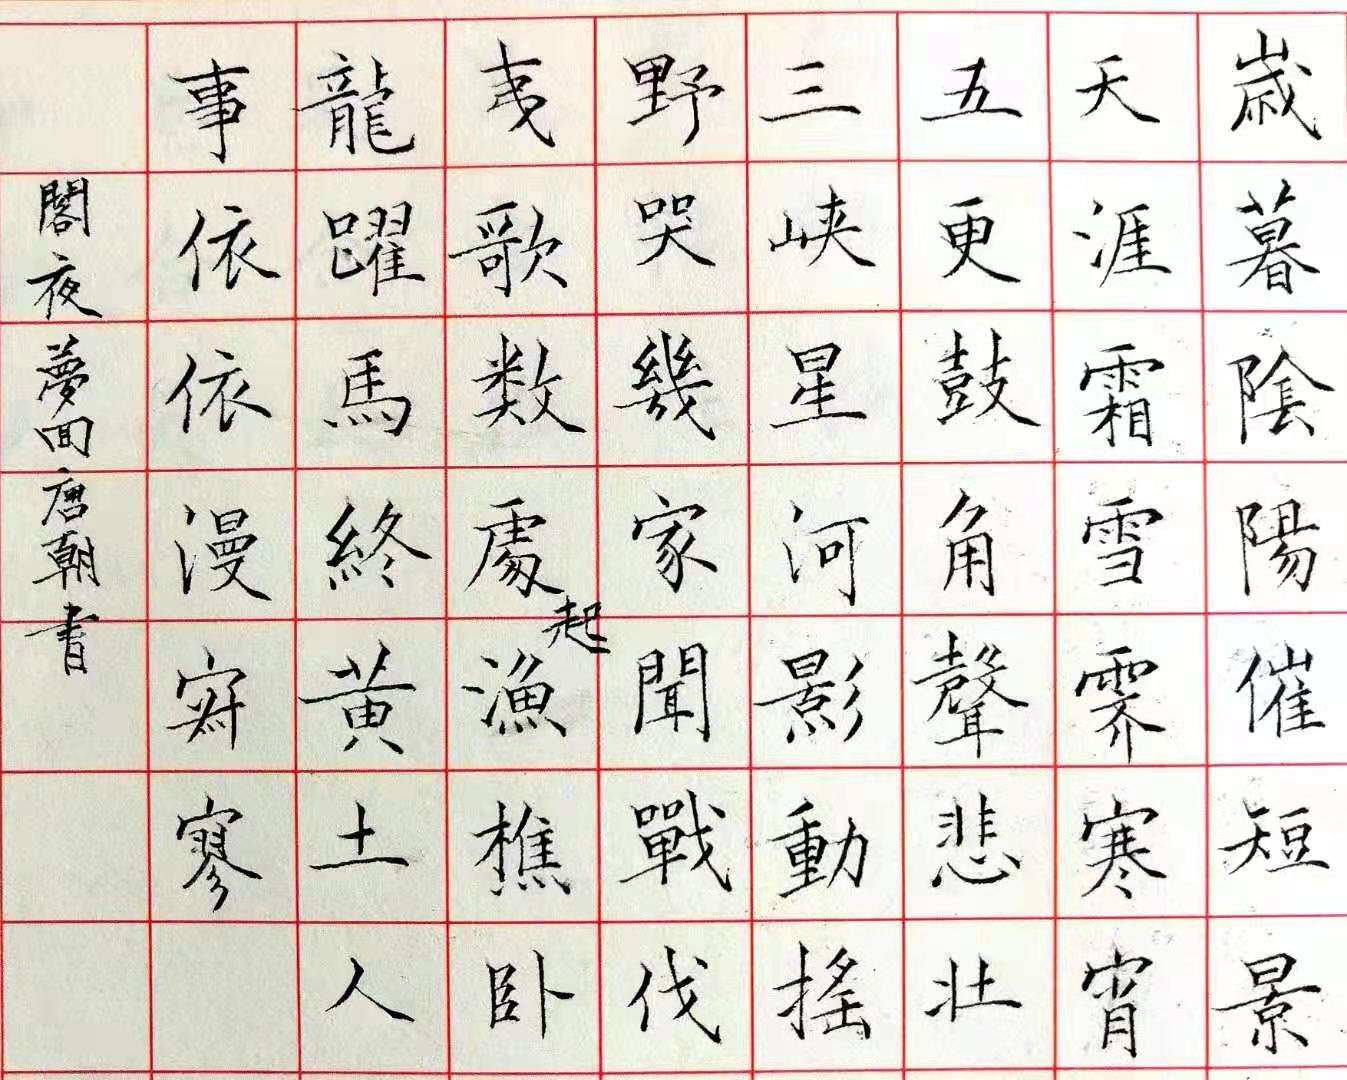 嵗暮陰陽催短景
天涯霜雪霁寒宵
五更鼓角聲悲壯
三峡星河影動搖
野哭幾家聞戰伐
夷歌数處起漁樵卧
龍躍馬終黄土人
事依依漫寂寥
閣夜夢回唐朝書